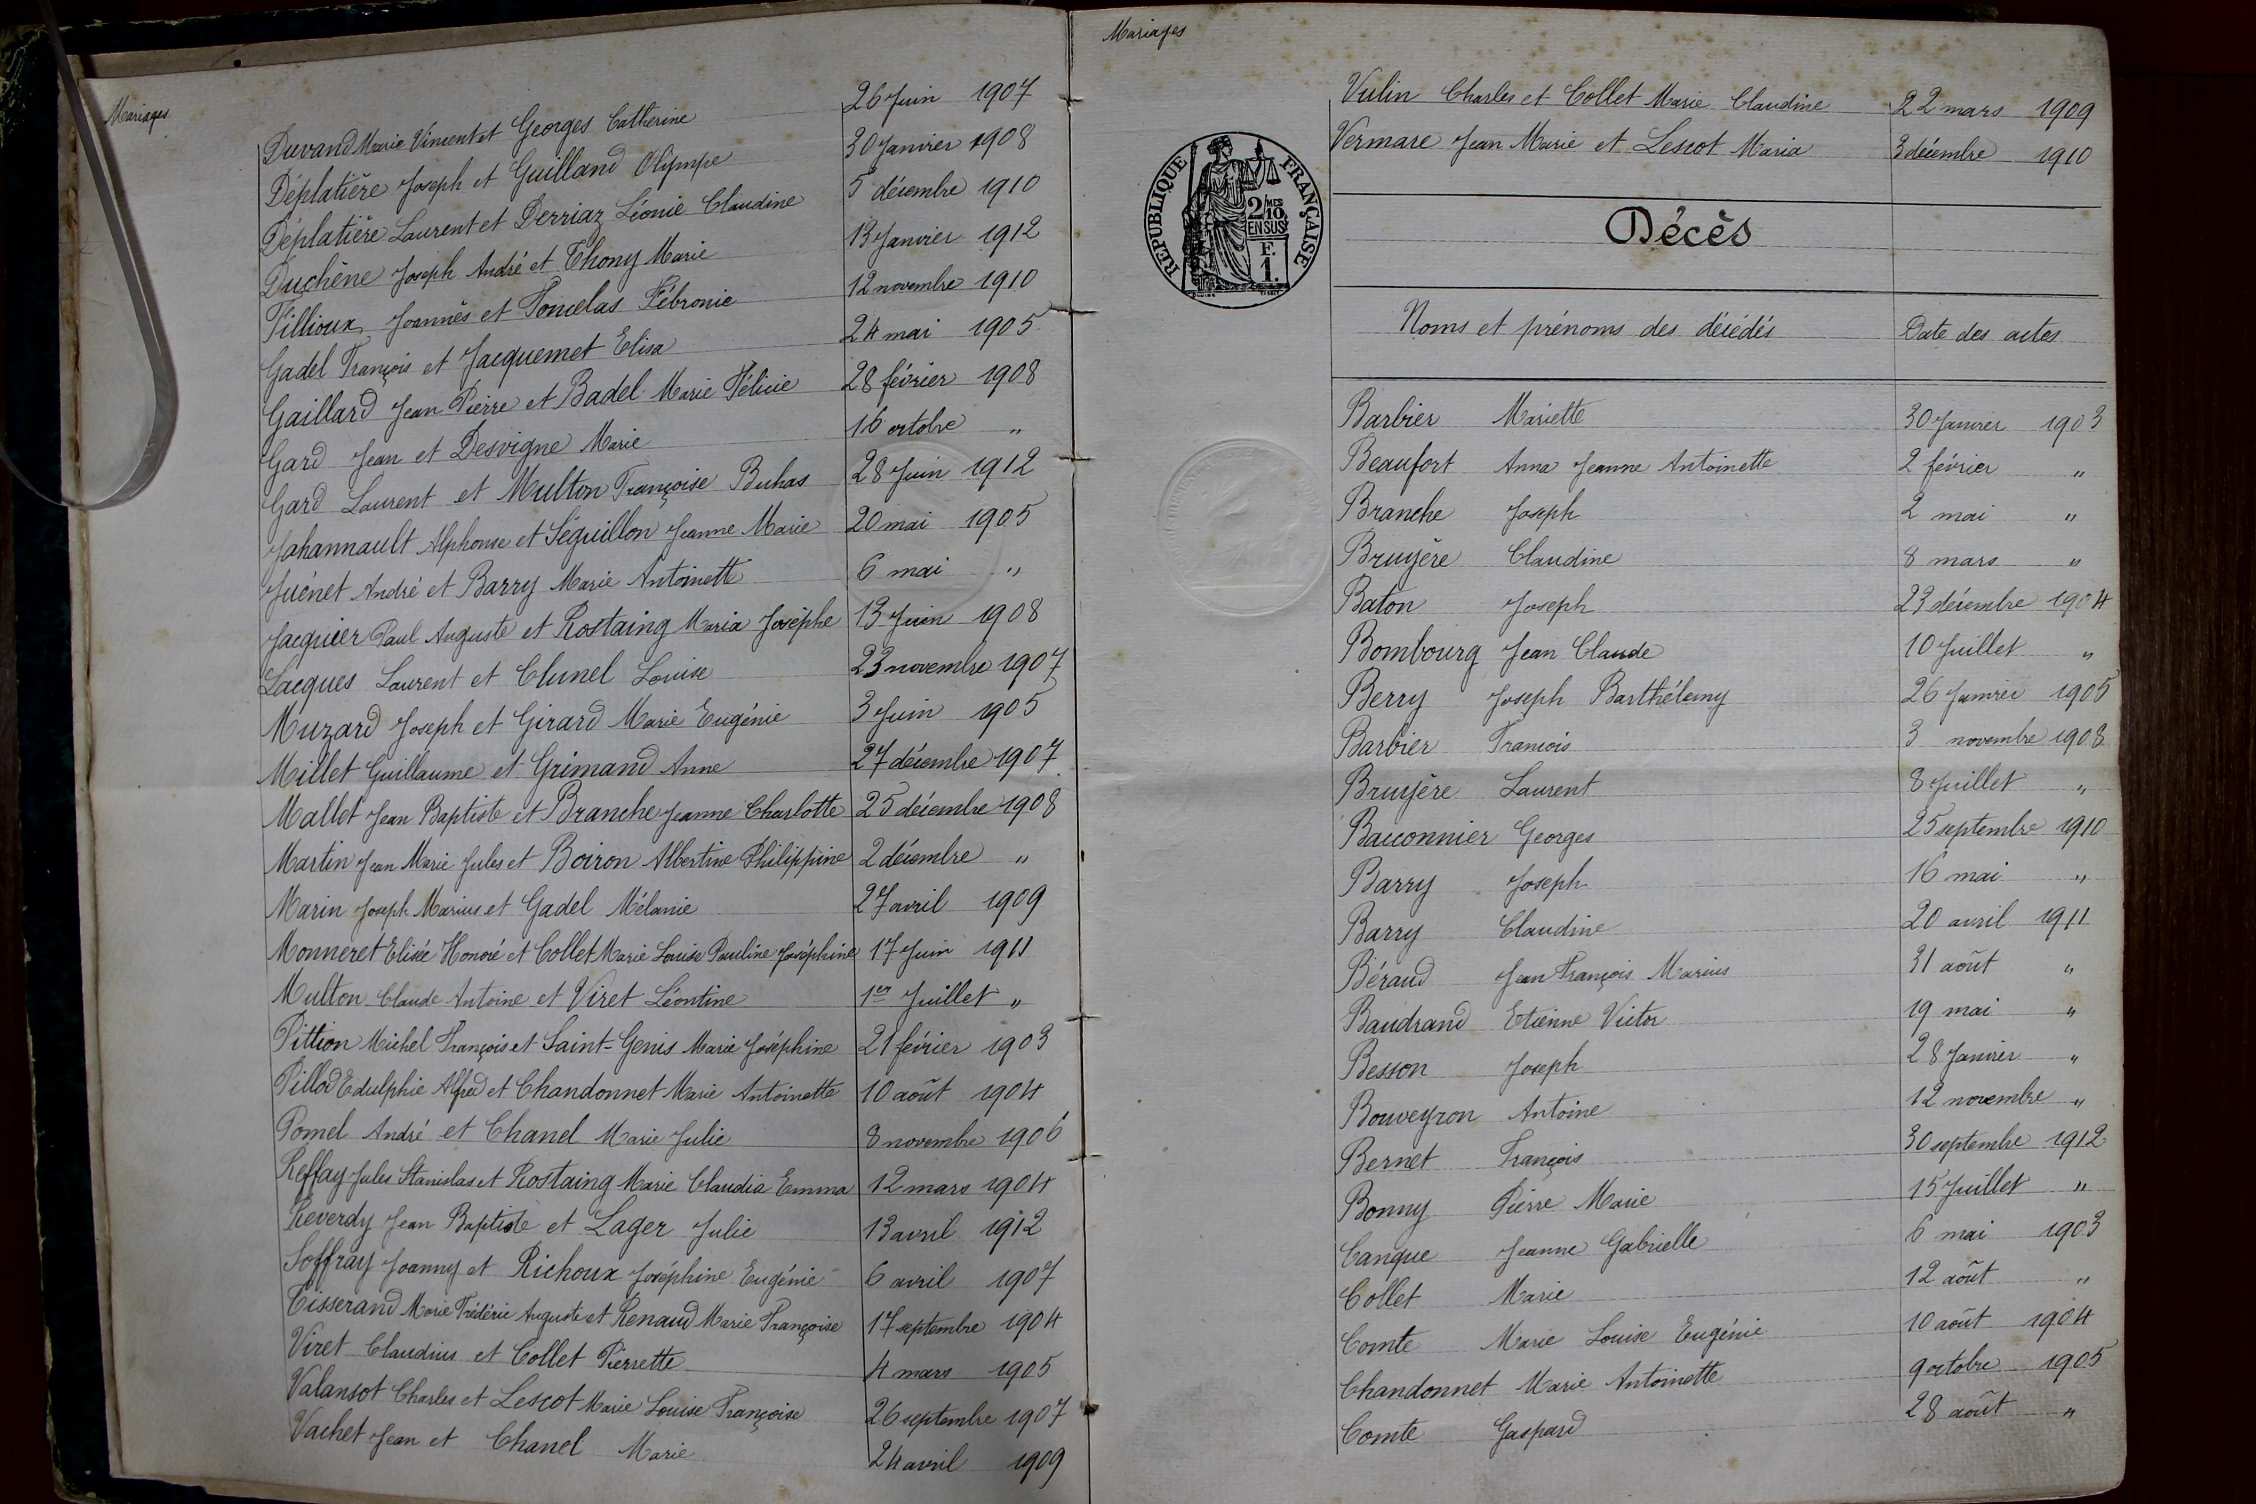 Mariages
Duvand Marie Vincent et Georges Catherine 26 Juin 1907
Déplatière Joseph et Guilland Olympe 30 Janvier 1908
Déplatière Laurent et Derriaz Léonie Claudine 5 décembre 1910
Duchêne Joseph André et Thony Marie 13 Janvier 1912
Fillioux Joannès et Poncelas Fébronie 12 novembre 1910
Gadel François et Jacquemet Elisa 24 mai 1905
Gaillard Jean Pierre et Badel Marie Félicie 28 février 1908
Gard Jean et Desvigne Marie 16 octobre "
Gard Laurent et Multon Françoise Buhas 28 Juin 1912
Jahannault Alphonse et Séguillon Jeanne Marie 20 mai 1905
Juénet André et Barry Marie Antoinette 6 mai "
Jacquier Paul Auguste et Rostaing Maria Josèphe 13 Juin 1908
Lacques Laurent et Clunel Louise 23 novembre 1907
Muzard Joseph et Girard Marie Eugénie 3 Juin 1905
Millet Guillaume et Grimand Anne 27 décembre 1907
Mallet Jean Baptiste et Branche Jeanne Charlotte 25 décembre 1908
Martin Jean Marie Jules et Boiron Albertine Philippine 2 décembre "
Marin Joseph Marius et Gadel Mélanie 27 avril 1909
Monneret Elisée Honoré et Collet Marie Louise Pauline Joséphine 17 Juin 1911
Multon Claude Antoine et Viret Léontine 1er Juillet "
Pittion Michel François et Saint-Genis Marie Joséphine 21 février 1903
Pillod Edulphie Alfred et Chandonnet Marie Antoinette 10 août 1904
Pomel André et Chanel Marie Julie 8 novembre 1906
Reffay Jules Stanislas et Rostaing Marie Claudia Emma 12 mars 1904
Reverdy Jean Baptiste et Lager Julie 13 avril 1912
Soffray Joanny et Richoux Joséphine Eugénie 6 avril 1907
Tisserand Marie Frédéric Auguste et Renaud Marie Françoise 17 septembre 1904
Viret Claudius et Collet Pierrette 4 mars 1905
Valansot Charles et Lescot Marie Louise Françoise 26 septembre 1907
Vachet Jean et Chanel Marie 24 avril 1909
Mariages
Vulin Charles et Collet Marie Claudine 22 mars 1909
Vermare Jean Marie et Lescot Maria 3 décembre 1910
REPUBLIQUE FRANÇAISE
2/MES
10
EN SUS
F.
1.
Décès
Noms et prénoms des décédés Date des actes
Barbier Mariette 30 Janvier 1903
Beaufort Anna Jeanne Antoinette 2 février "
Branche Joseph 2 mai "
Bruyère Claudine 8 mars "
Baton Joseph 23 décembre 1904
Bombourg Jean Claude 10 Juillet "
Berry Joseph Barthélemy 26 Janvier 1905
Barbier François 3 novembre 1908
Bruyère Laurent 8 Juillet "
Bauconnier Georges 25 septembre 1910
Barry Joseph 16 mai "
Barry Claudine 20 avril 1911
Béraud Jean François Marius 31 août "
Baudrand Etienne Victor 19 mai "
Besson Joseph 28 Janvier "
Bouveyron Antoine 12 novembre "
Bernet François 30 septembre 1912
Bonny Pierre Marie 15 Juillet "
Canque Jeanne Gabrielle 6 mai 1903
Collet Marie 12 août "
Comte Marie Louise Eugénie 10 août 1904
Chandonnet Marie Antoinette 9 octobre 1905
Comte Gaspard 28 août "